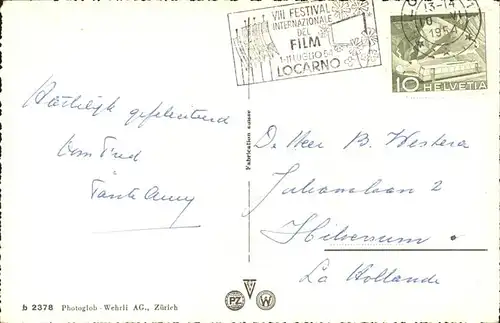 VIII FESTIVAL
INTERNAZIONALE
DEL
FILM
1-11 LUGLIO 54
LOCARNO
13-14
10. VI
1954
10 HELVETIA
Hartelijk gefeliciteerd
Tante Anny
Fabrication suisse
De Heer B. Westera
Julianalaan 2
Hilversum.
La Hollande
b 2378 Photoglob-Wehrli AG., Zürich
PZ W